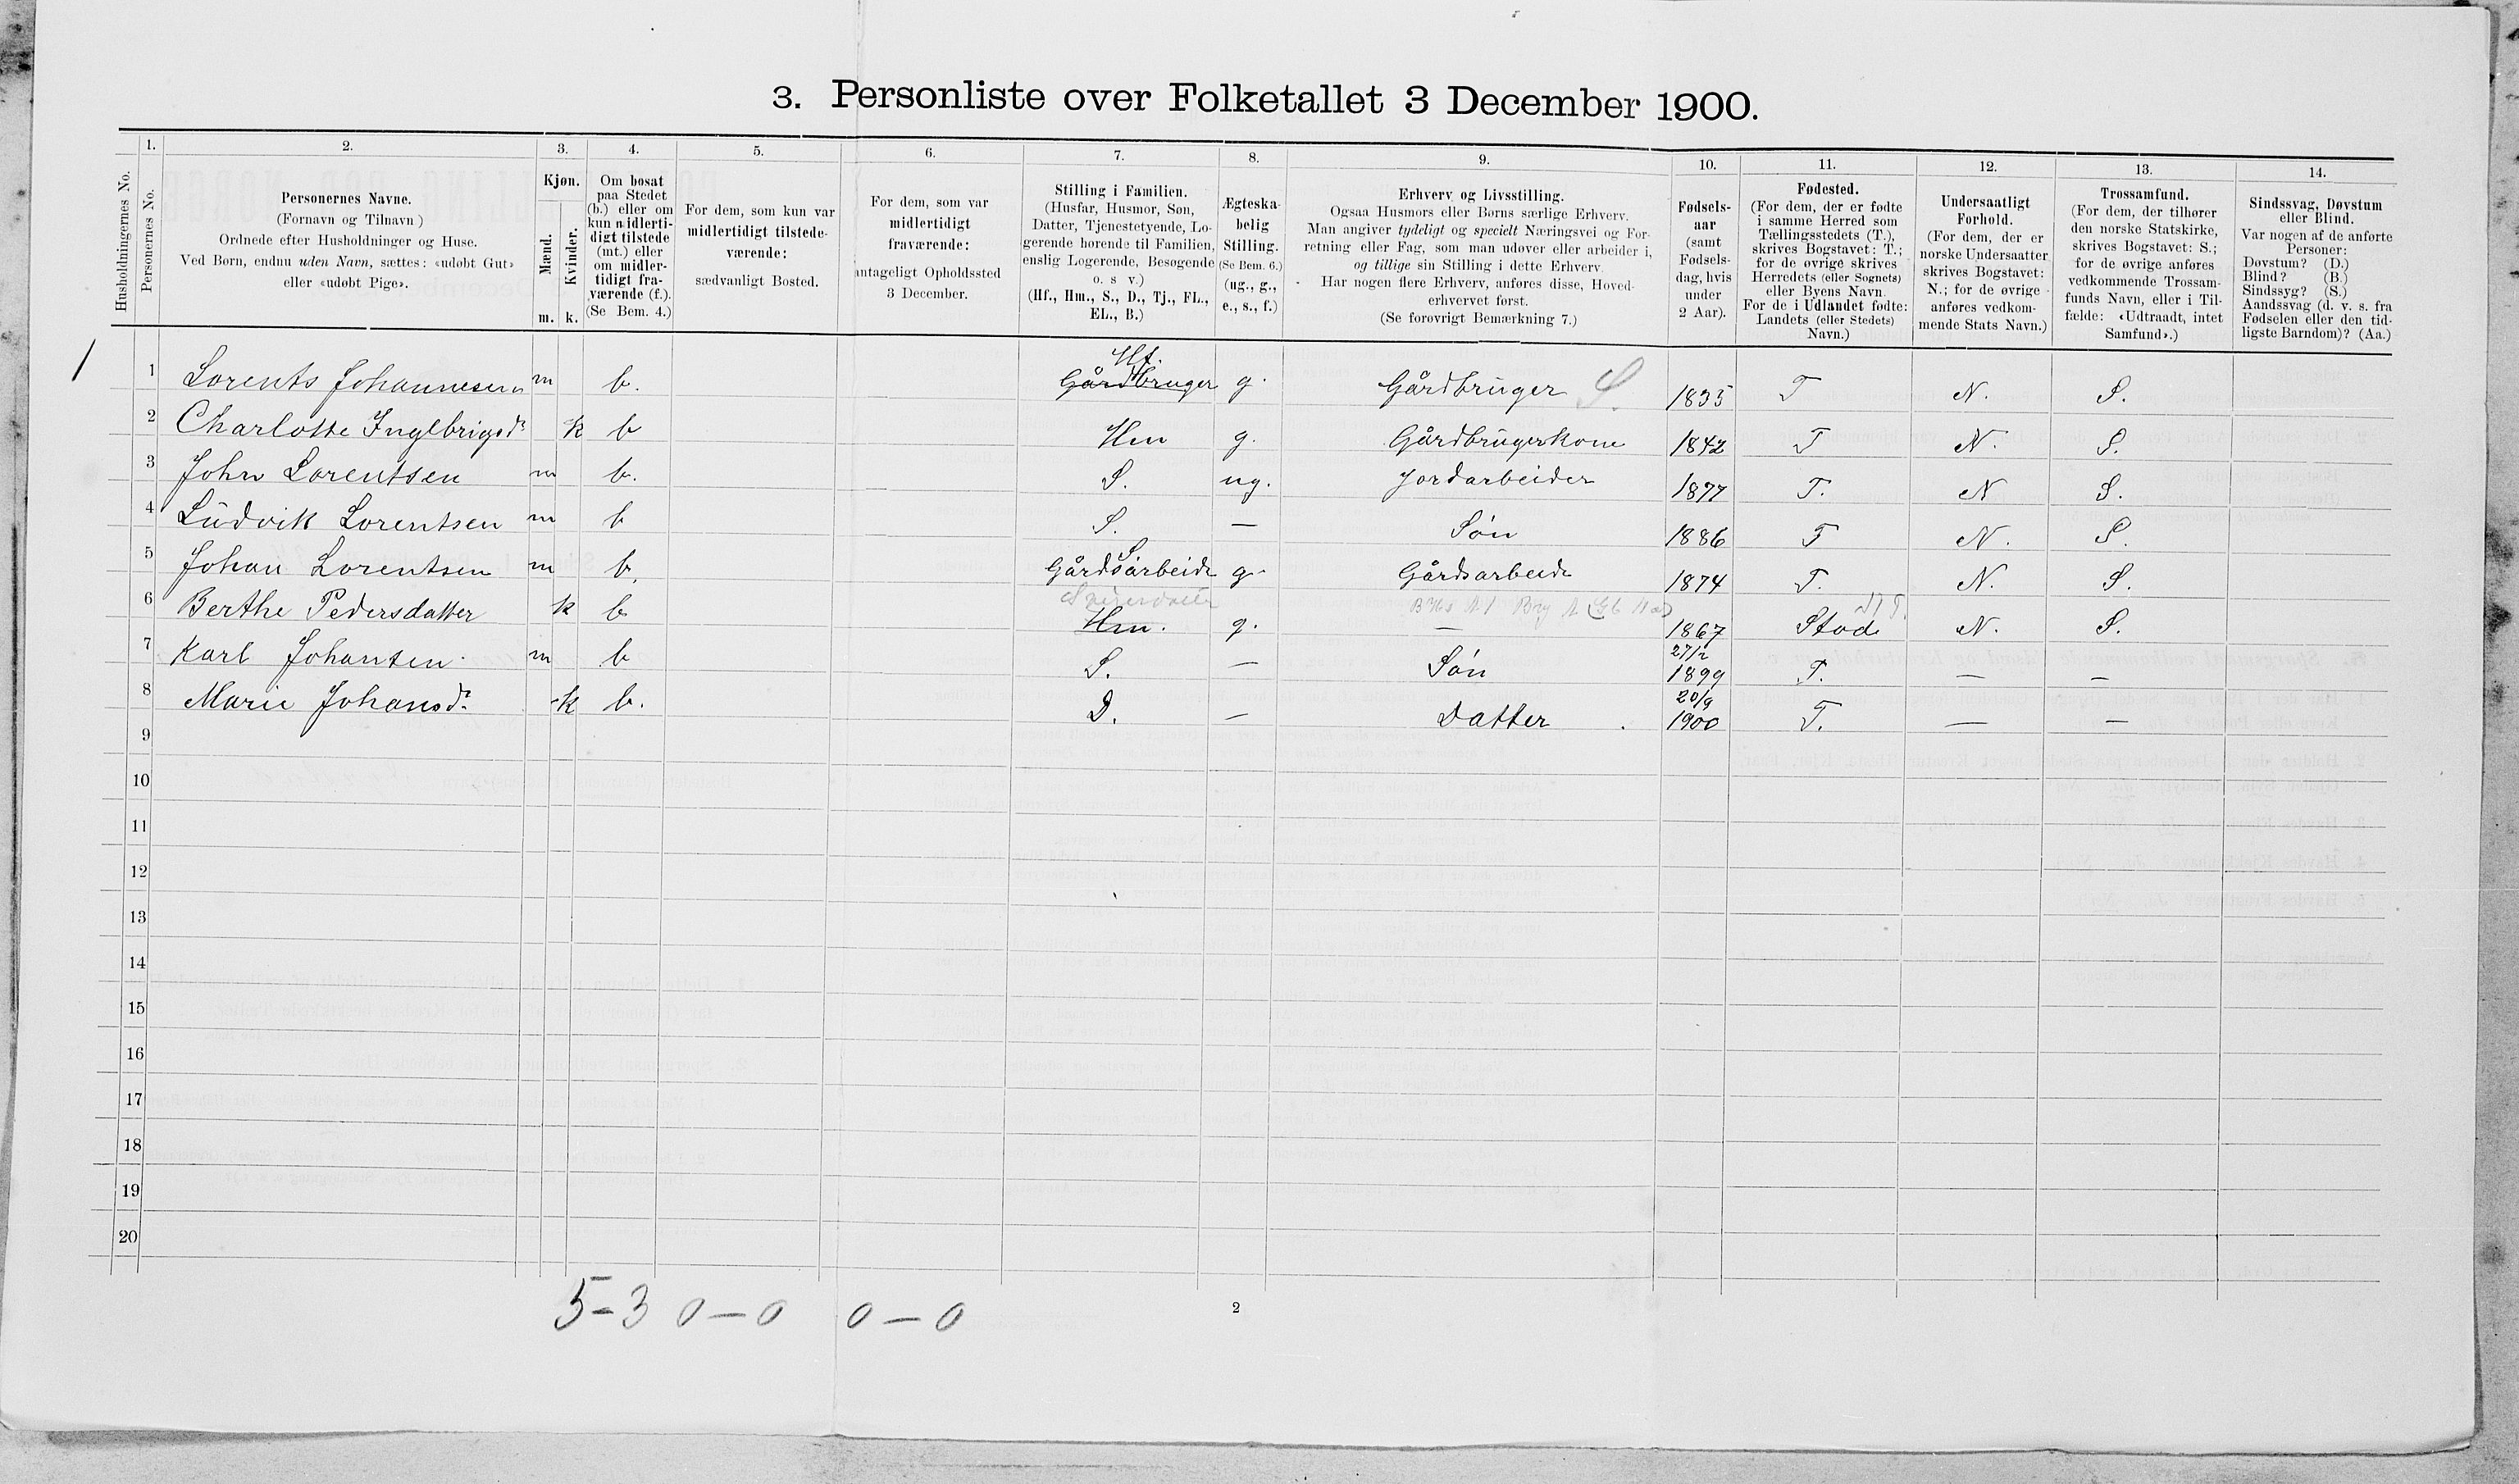 3. Personliste over Folketallet 3 December 1900.
Husholdningernes No.
1.
Personernes No.
2.
Personernes Navne.
(Fornavn og Tilnavn )
Ordnede efter Husholdninger og Huse.
Ved Børn, endnu uden Navn, sættes: «udøbt Gut»
eller «udøbt Pige».
3.
Kjøn.
Mænd.
Kvinder.
m. k.
4.
Om bosat
paa Stedet
(b.) eller om
kun midlerti-
digt tilstede
(mt.) eller
om midler-
tidigt fra-
værende (f.).
(Se Bem. 4.)
5.
For dem, som kun var
midlertidigt tilstede-
værende:
sædvanligt Bosted.
6.
For dem, som var
midlertidigt
fraværende:
antageligt Opholdssted
3 December.
7.
Stilling i Familien.
(Husfar, Husmor, Søn,
Datter, Tjenestetyende, Lo-
gerende hørende til Familien,
enslig Logerende, Besøgende
o. s v.)
(Hf., Hm., S., D., Tj., FL.,
EL., B.)
8.
Ægteska-
belig
Stilling.
(Se Bem. 6.)
(ug., g.,
e., s., f.)
9.
Erhverv og Livsstilling.
Ogsaa Husmors eller Børns særlige Erhverv.
Man angiver tydeligt og specielt Næringsvei og For-
retning eller Fag, som man udøver eller arbeider i,
og tillige sin Stilling i dette Erhverv.
Har nogen flere Erhverv, anføres disse, Hoved-
erhvervet først.
(Se forøvrigt Bemærkning 7.)
10.
Fødsels-
aar
(samt
Fødsels-
dag, hvis
under
2 Aar).
11.
Fødested.
(For dem, der er fødte
i samme Herred som
Tællingsstedets (T.),
skrives Bogstavet: T.;
for de øvrige skrives
Herredets (eller Sognets)
eller Byens Navn.
For de i Udlandet fødte:
Landets (eller Stedets)
Navn.)
12.
Undersaatligt
Forhold.
(For dem, der er
norske Undersaatter
skrives Bogstavet:
N.; for de øvrige
anføres vedkom-
mende Stats Navn.)
13.
Trossamfund.
(For dem, der tilhører
den norske Statskirke,
skrives Bogstavet: S.;
for de øvrige anføres
vedkommende Trossam-
funds Navn, eller i Til-
fælde: «Udtraadt, intet
Samfund».)
14.
Sindssvag, Døvstum
eller Blind.
Var nogen af de anførte
Personer:
Døvstum? (D.)
Blind? (B.)
Sindssyg? (S.)
Aandssvag (d. v. s. fra
Fødselen eller den tid-
ligste Barndom)? (Aa.)
1 1 Lorents Johannesen m b. Gårdbruger Hf. g. Gårdbruger S. 1835 T N. S.
2 Charlotte Inglbrigsdr k b Hm g. Gårdbrugerkone 1842 T N. S.
3 John Lorentsen m b. S. ug. Jordarbeider 1877 T. N S.
4 Ludvik Lorentsen m b S. — Søn 1886 T N. S.
5 Johan Lorentsen m b. S Gårdsarbeide g. Gårdsarbeide 1874 T. N. S.
6 Berthe Pedersdatter k b Hm. g. — 1867 Stod N. S.
7 Karl Johansen m b S. — Søn 27/2 1899 T. — —
8 Marie Johansdr. k b. D. — Datter 20/9 1900 T. — —
9
10
11
12
13
14
15
16
17
18
19
20
5-3 0-0 0-0
2